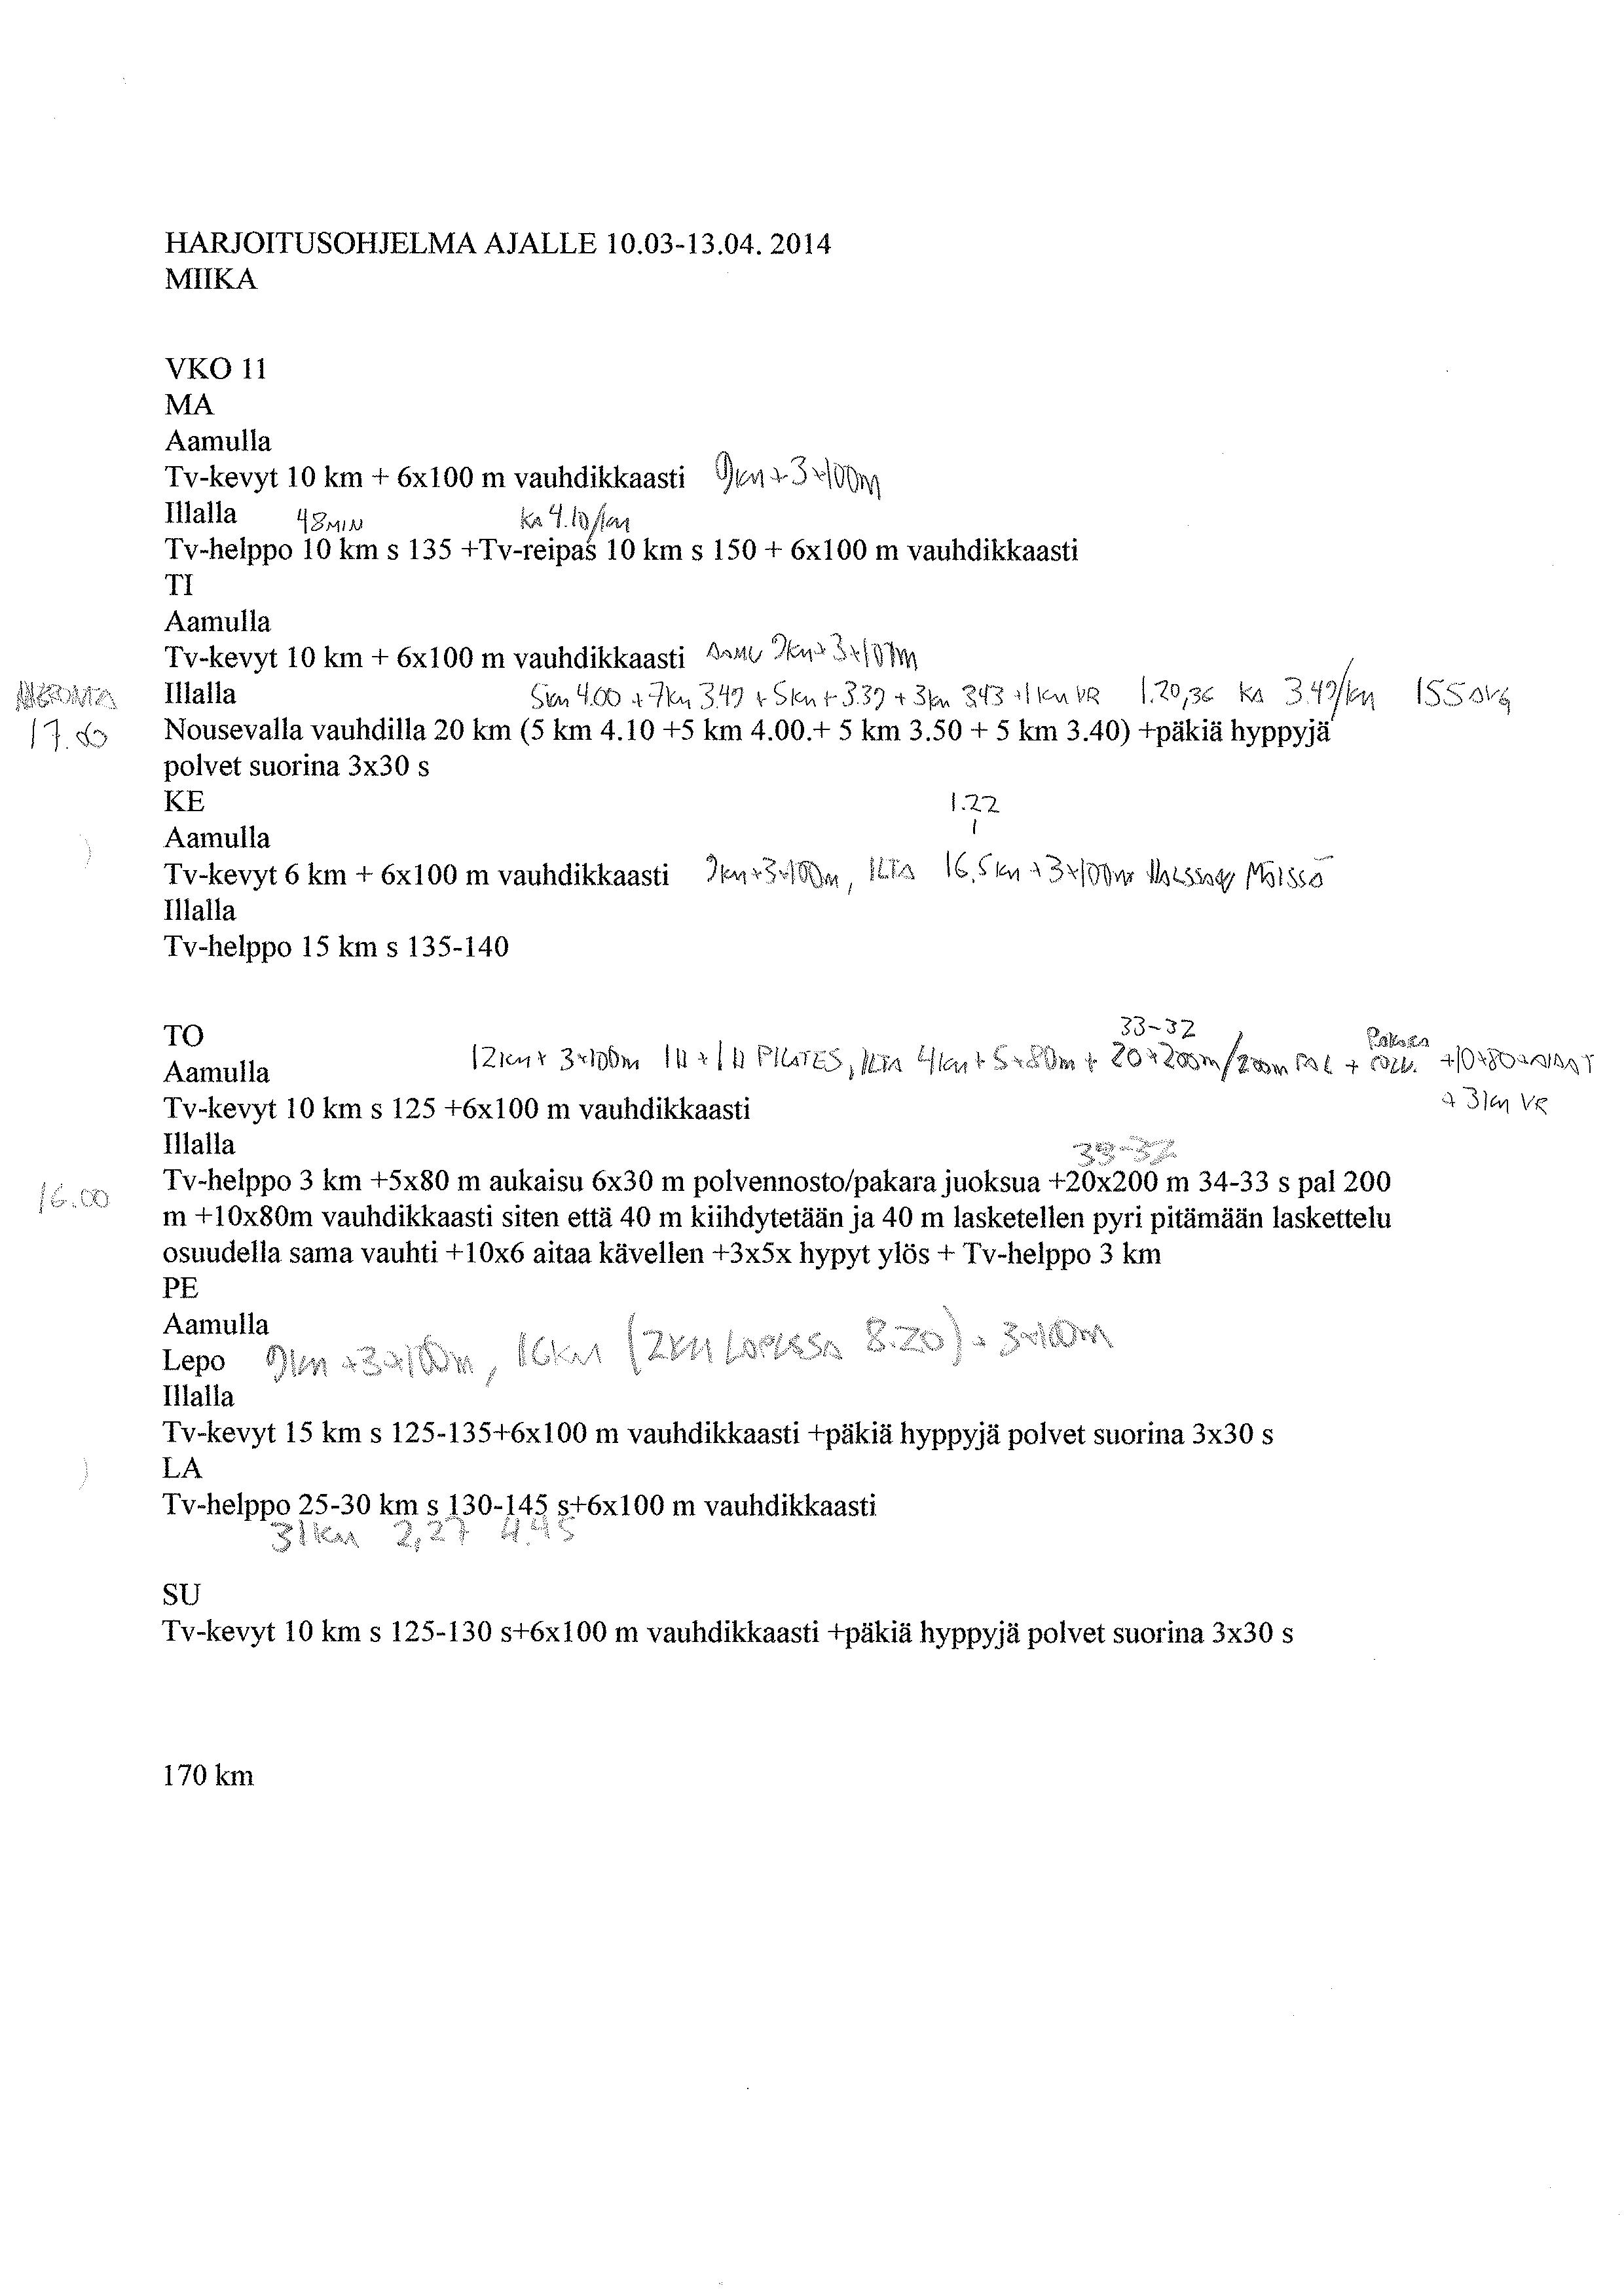 HARJOITUSOHJELMA AJALLE 10.03-13.04. 2014
MIIKA
VKO 11
MA
Aamulla
Tv-kevyt 10 km + 6x100 m vauhdikkaasti 9km + 3x100m
Illalla 48MIN KA 4.10/km
Tv-helppo 10 km s 135 +Tv-reipas 10 km s 150 + 6x100 m vauhdikkaasti
TI
Aamulla
Tv-kevyt 10 km + 6x100 m vauhdikkaasti AAMU 9km + 3x100m
Illalla 5km 4.00 + 7km 3.49 + 5km + 3.39 + 3km 3.43 + 1km VR 1.20,36 KA 3.49/km 155 AVG
17.00 Nousevalla vauhdilla 20 km (5 km 4.10 +5 km 4.00.+ 5 km 3.50 + 5 km 3.40) +päkiä hyppyjä
polvet suorina 3x30 s
KE 1.22
Aamulla
Tv-kevyt 6 km + 6x100 m vauhdikkaasti 9km+3x100m, ILTA 16,5km + 3x100m
Illalla
Tv-helppo 15 km s 135-140
TO 33-32
Aamulla 12km + 3x100m 1H + 1H PILATES, ILTA 4km + 5x80m + 20x200m/200m PAL + PAKARA POLV. +10x80m AIDAT
Tv-kevyt 10 km s 125 +6x100 m vauhdikkaasti + 3km VR
Illalla 33-32
16.00 Tv-helppo 3 km +5x80 m aukaisu 6x30 m polvennosto/pakara juoksua +20x200 m 34-33 s pal 200
m +10x80m vauhdikkaasti siten että 40 m kiihdytetään ja 40 m lasketellen pyri pitämään laskettelu
osuudella sama vauhti +10x6 aitaa kävellen +3x5x hypyt ylös + Tv-helppo 3 km
PE
Aamulla
Lepo 9km +3x100m, 16km (2km LOPUSSA 8.20) + 3x100m
Illalla
Tv-kevyt 15 km s 125-135+6x100 m vauhdikkaasti +päkiä hyppyjä polvet suorina 3x30 s
LA
Tv-helppo 25-30 km s 130-145 s+6x100 m vauhdikkaasti
31km 2,27 4.45
SU
Tv-kevyt 10 km s 125-130 s+6x100 m vauhdikkaasti +päkiä hyppyjä polvet suorina 3x30 s
170 km